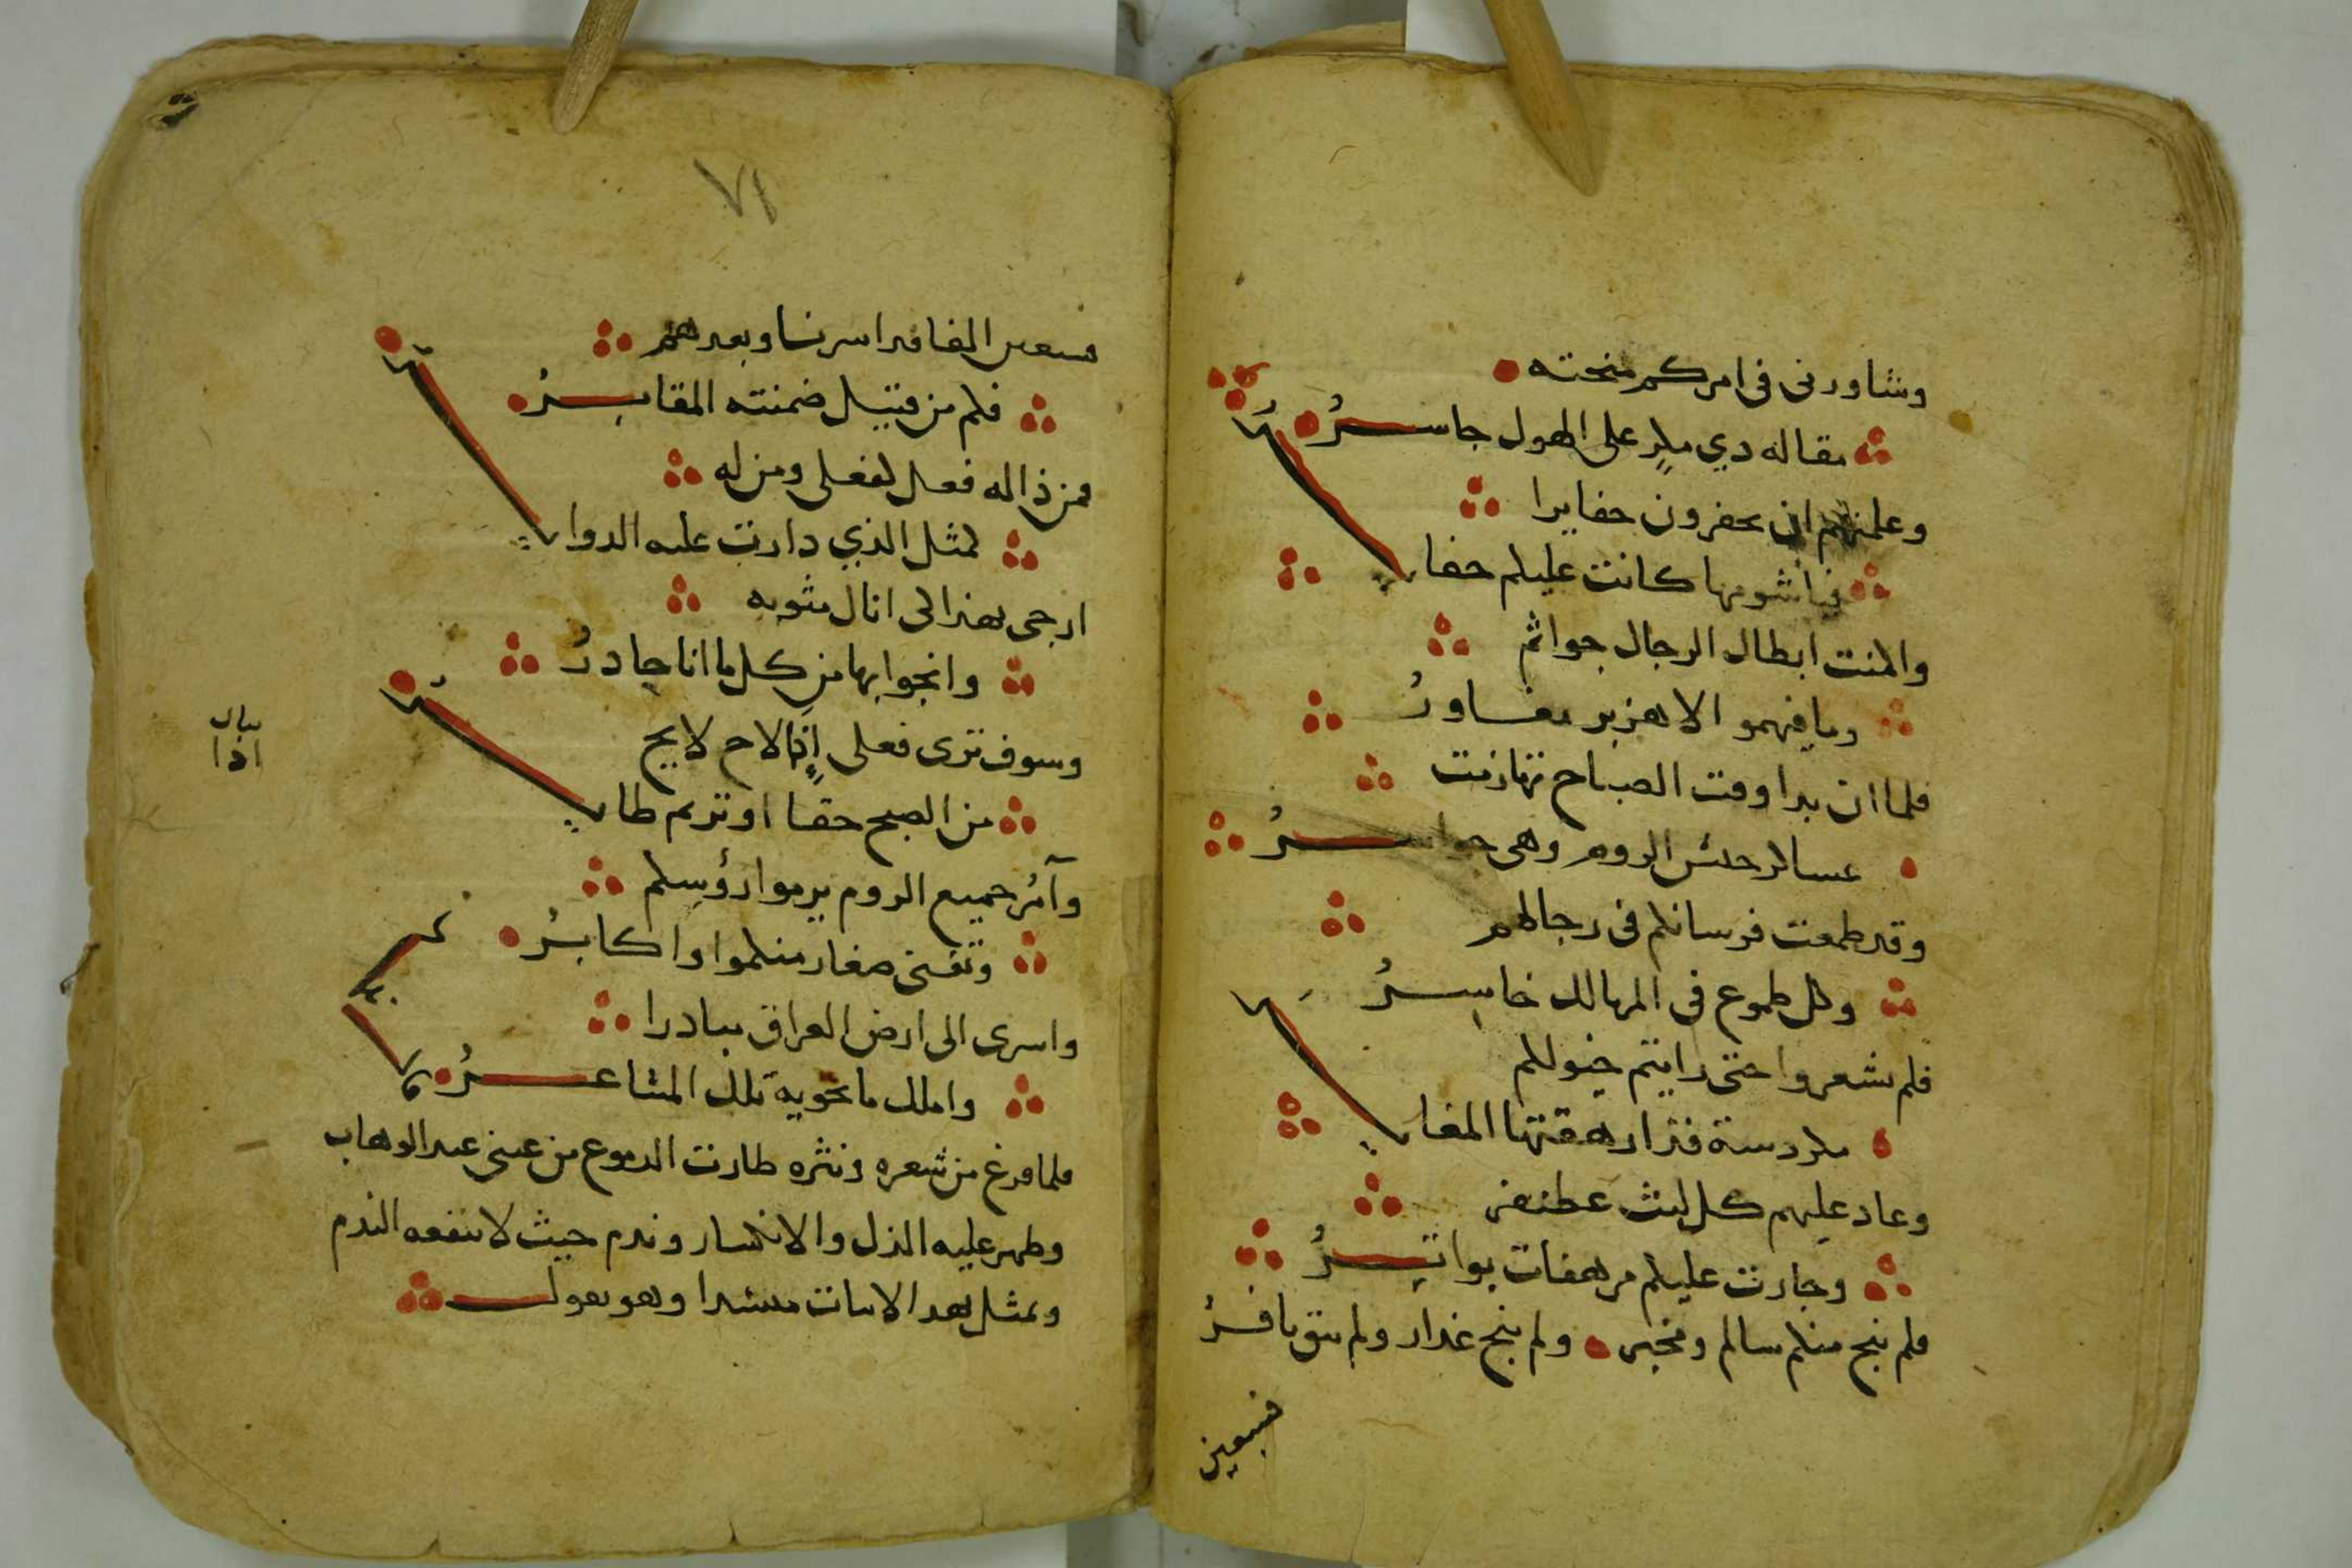 وشاورنى فى امركم منحته
مقاله دي مكر على الهول جاسر
وعلمتهم ان يحفرون حفايرا
فياشومها كانت عليكم حفاير
واكمنت ابطال الرجال جواثم
وما فيهمو الا هزبر مغاور
فلما ان بدا وقت الصباح تهازمت
عساكر جيش الروم وهى حواسر
وقد طمعت فرسانكم فى رجالهم
وكل طموع فى المهالك خاسر
فلم تشعروا حتى رايتم خيولكم
مكردسة قد ارهقتها المغاير
وعاد عليهم كل ليث غطنفر
وجارت عليكم مرهفات بواتر
فلم ينج منكم سالم ومخبر ولم ينج غدار ولم يبق نافر
فسبعين
٧١
فسبعين الفا قد اسرنا وبعدهم
فكم من قتيل ضمنته المقابر
فمن ذا له فعل كفعلى ومن له
كمثل الذي دارت عليه الدواير
ارجى بهذا الى انال مثوبه
وانجوا بها من كل ما انا حادر
وسوف ترى فعلى اذا لاح لايح
بيان
اذا
من الصبح حقا او ترنم طاير
وآمر جميع الروم يرموا رؤسكم
وتفنى صغار منكموا واكابر
واسرى الى ارض العراق مبادرا
واملك ما تحويه تلك المشاعر
فلما فرغ من شعره ونثره طارت الدموع من عينى عبد الوهاب
وظهر عليه الذل والانكسار وندم حيث لا ينفعه الندم
وتمثل بهذا الابيات منشدا وهو يقول